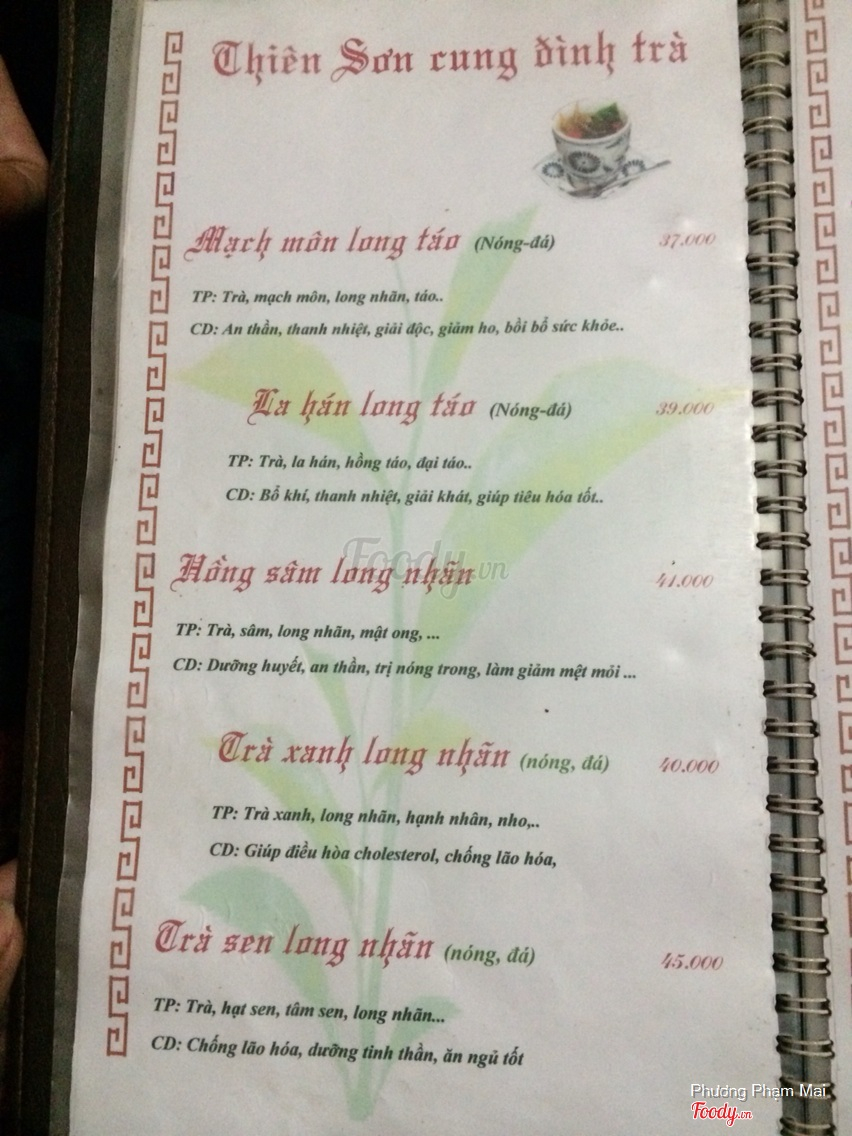 Thiên Sơn cung đình trà
Mạch môn long táo (Nóng-đá) 37.000
TP: Trà, mạch môn, long nhãn, táo..
CD: An thần, thanh nhiệt, giải độc, giảm ho, bồi bổ sức khỏe..
La hán long táo (Nóng-đá) 39.000
TP: Trà, la hán, hồng táo, đại táo..
CD: Bổ khí, thanh nhiệt, giải khát, giúp tiêu hóa tốt..
Foody.vn
Hồng sâm long nhãn 41.000
TP: Trà, sâm, long nhãn, mật ong, ...
CD: Dưỡng huyết, an thần, trị nóng trong, làm giảm mệt mỏi ...
Trà xanh long nhãn (nóng, đá) 40.000
TP: Trà xanh, long nhãn, hạnh nhân, nho,..
CD: Giúp điều hòa cholesterol, chống lão hóa,
Trà sen long nhãn (nóng, đá) 45.000
TP: Trà, hạt sen, tâm sen, long nhãn...
CD: Chống lão hóa, dưỡng tinh thần, ăn ngủ tốt
Phương Phạm Mai
Foody.vn